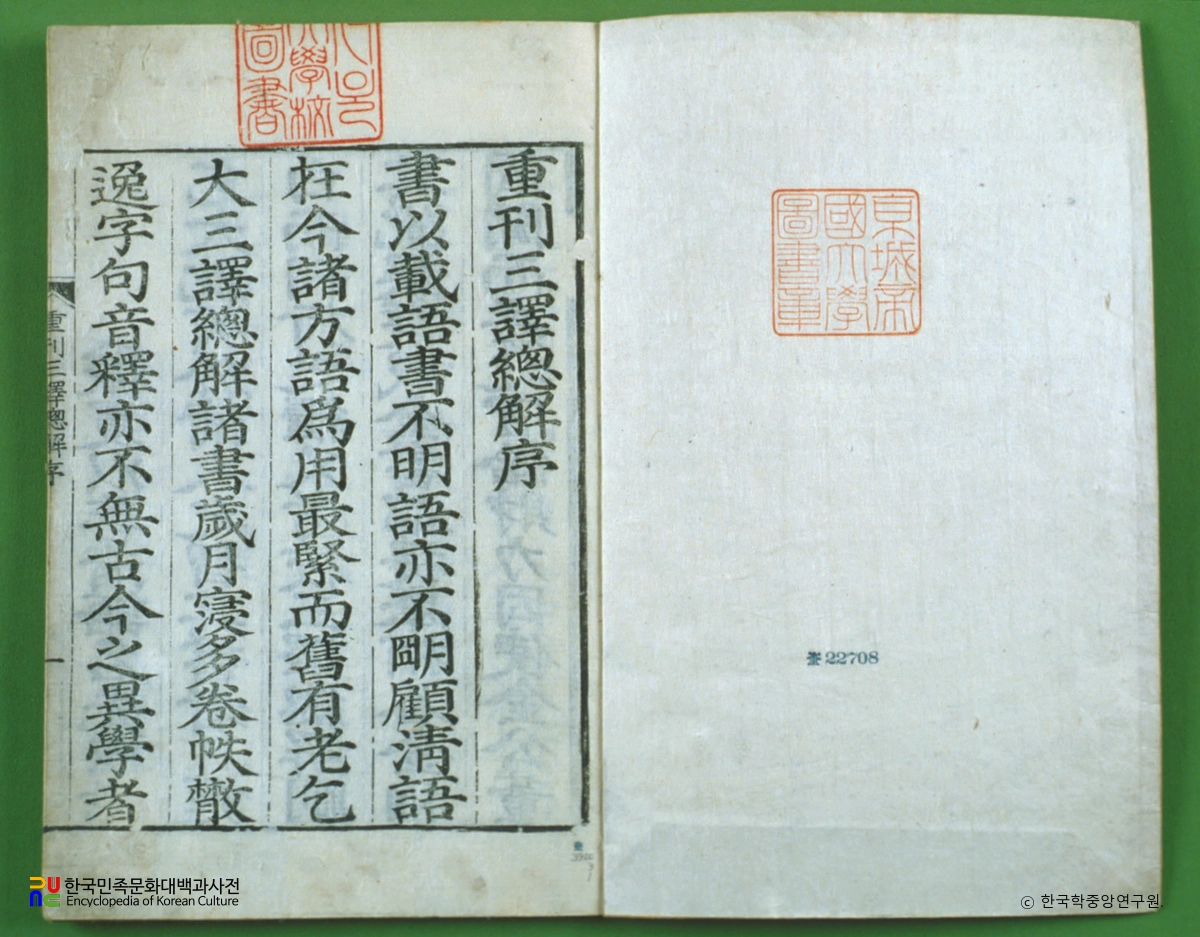 重刊三譯總解序
書以載語書不明語亦不明顧淸語
在今諸方語爲用最緊而舊有老乞
大三譯總解諸書歲月寖多卷帙散
逸字句音釋亦不無古今之異學者
重刊三譯總解序
一
大學校
圖書
京城帝
國大學
圖書章
奎 22708
한국민족문화대백과사전
Encyclopedia of Korean Culture
ⓒ 한국학중앙연구원.